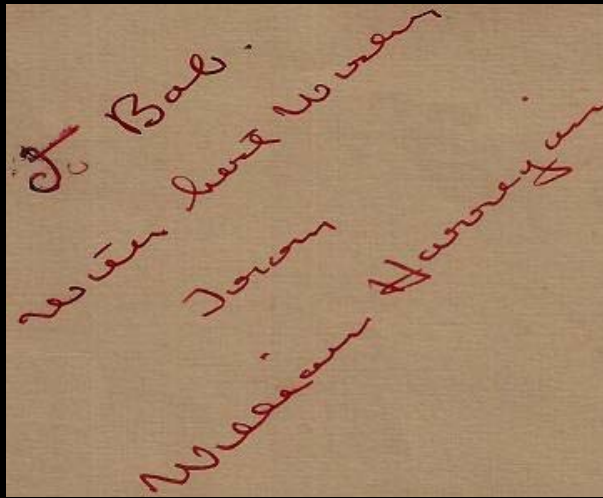 To Bob.
with best wishes
from
William Hanneyan